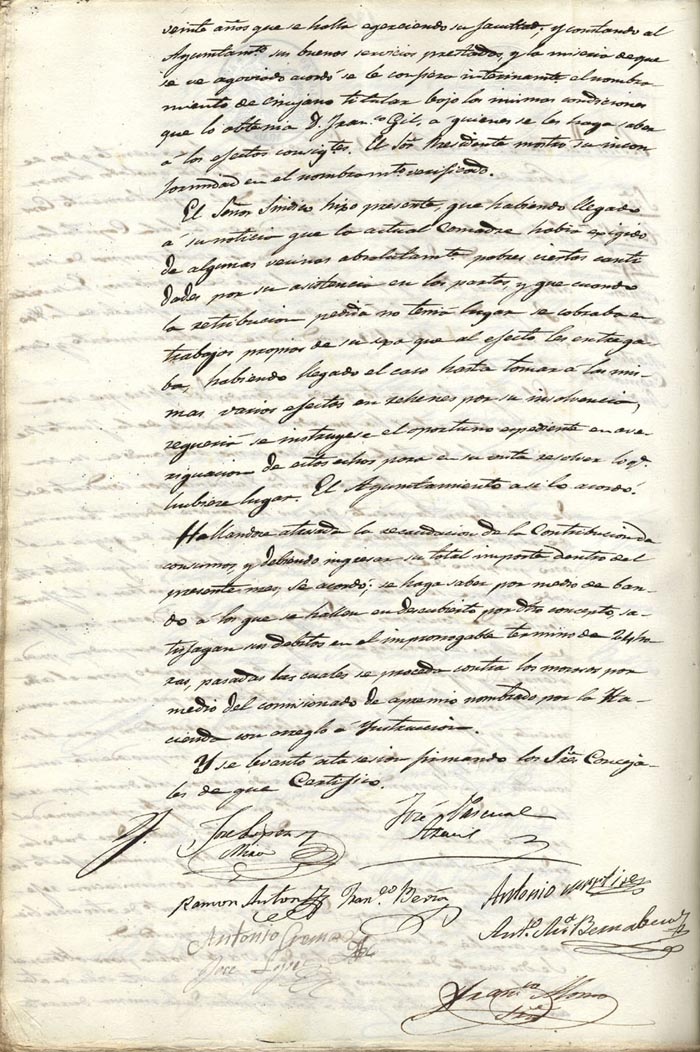 veinte años que se halla egerciendo su facultad, y constando al
Ayuntamto. sus buenos servicios prestados, y la miseria de que
se ve agoviado acordó se le confiera interinamte. el nombra
miento de cirujano titular bajo las mismas condiciones
que lo obtenia D. Franco. Gil, a quienes se les haga saber
á los efectos consigtes. El Sor. Presidente mostró su incon
formidad en el nombramto. verificado.
El Señor Sindico hizo presente, que habiendo llegado
a su noticia que la actual Comadre habia exigido
de algunas vecinas absolutamte. pobres ciertas canti
dades por su asistencia en los partos, y que cuando
la retribucion pedida no tenia lugar se cobraba en
trabajos propios de su que al efecto les entrega
ba, habiendo llegado el caso hasta tomar a las mis-
mas varios efectos en rehenes por su insolvencia,
requeria se instruyese el oportuno espediente en ave
riguacion de estos echos para en su vista resolver lo q.
hubiere lugar. El Ayuntamiento asi lo acordó.
Hallandose atrasada la recaudacion de la Contribucion de
consumos, y debiendo ingresar su total importe dentro del
presente mes, Se acordó; se haga saber por medio de ban-
do á los que se hallen en descubierto por dho. concepto, sa-
tisfagan sus debitos en el improrrogable termino de 24 ho
ras, pasadas las cuales se proceda contra los morosos por
medio del comisionado de apremio nombrado por la Ha-
cienda con arreglo a Ynstruccion.
Y se levantó esta sesion firmando los Sres. Conceja-
les de que Certifico.
José Pascual
José Lopez
Miro
Ramon Anton Franco. Berna Antonio
Antonio Crema Anto. Ma. Bernabeu
José Lopez
Franco. Alonso
Srio.